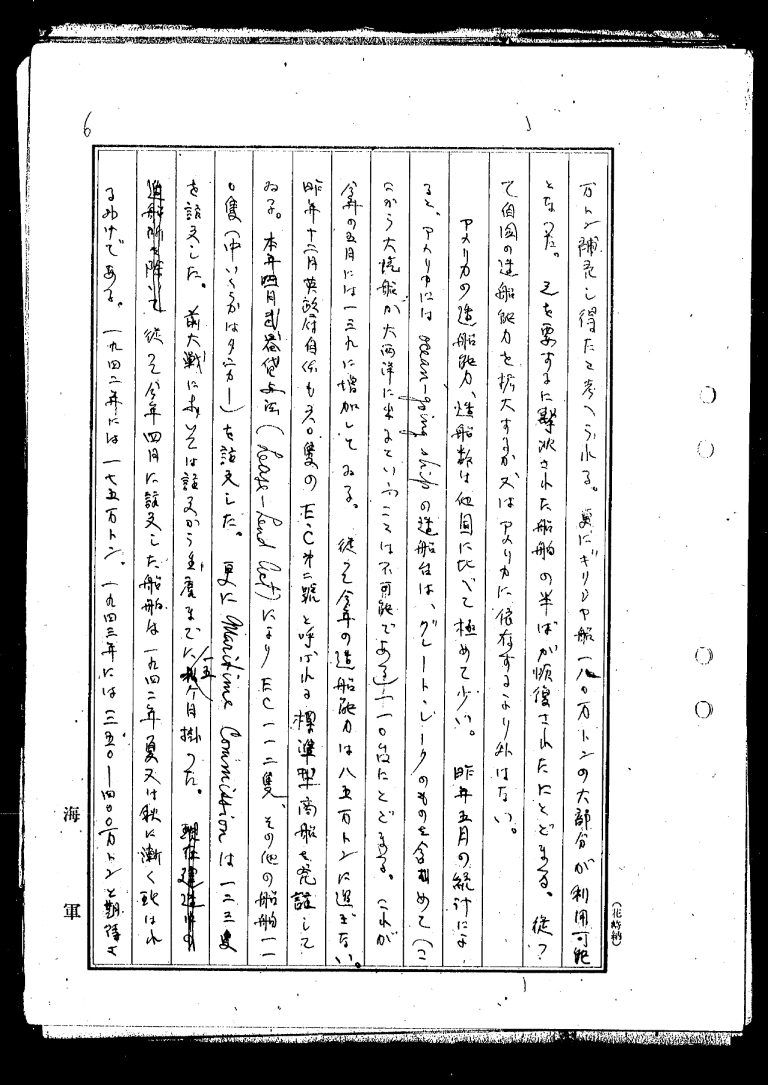 万トン補充し得たと考へられる。更にギリシヤ船一八〇万トンの大部分が利用可能
となつた。之を要するに撃沈された船舶の半ばが恢復されたにとどまる。従つ
て自国の造船能力を拡大するか又はアメリカに依存するより外はない。
アメリカの造船能力、造船数は他国に比べて極めて少い。昨年五月の統計によ
ると、アメリカには ocean-going ship の造船台は、グレート・レークのものを含めて(こ
こから大洋船が大西洋に出るということは不可能である)一一〇台にとどまる。これが
今年の五月には一三九に増加してゐる。従つて今年の造船能力は八五万トンに過ぎない。
昨年十二月英政府自体も六〇隻のE・C第二號と呼ばれる標準型商船を発註して
ゐる。本年四月武器貸与法(Lease-Lend Act)によりEC一一二隻、その他の船舶一一
〇隻(中いくらかはタンカー)を註文した。更に Maritime Commission は一二三隻
を註文した。前大戦に於ては註文から進水までに一五ケ月掛つた。現在建造中の
造船所を除いて従つて今年四月に註文した船舶は一九四二年夏又は秋に漸く現はれ
るわけである。一九四二年には一七五万トン。一九四三年には三五〇―四〇〇万トンと期待さ
海軍
6